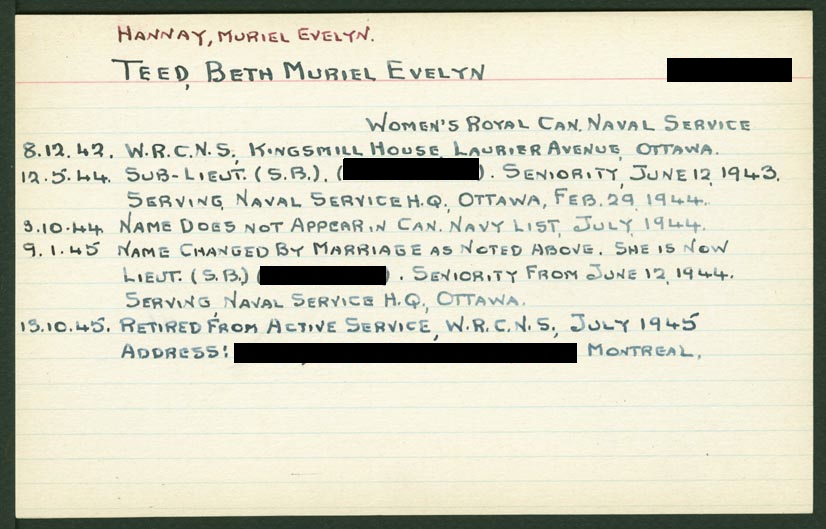 HANNAY, MURIEL EVELYN.
TEED, BETH MURIEL EVELYN
WOMEN'S ROYAL CAN. NAVAL SERVICE
8.12.42. W.R.C.N.S., KINGSMILL HOUSE, LAURIER AVENUE, OTTAWA.
12.5.44. SUB-LIEUT. (S.B.), ( ). SENIORITY, JUNE 12, 1943.
SERVING, NAVAL SERVICE H.Q., OTTAWA, FEB. 29, 1944.
3.10.44 NAME DOES NOT APPEAR IN CAN. NAVY LIST, JULY, 1944.
9.1.45 NAME CHANGED BY MARRIAGE AS NOTED ABOVE. SHE IS NOW
LIEUT. (S.B.) ( ). SENIORITY FROM JUNE 12, 1944.
SERVING NAVAL SERVICE H.Q., OTTAWA.
13.10.45. RETIRED FROM ACTIVE SERVICE, W.R.C.N.S., JULY 1945
ADDRESS: MONTREAL.